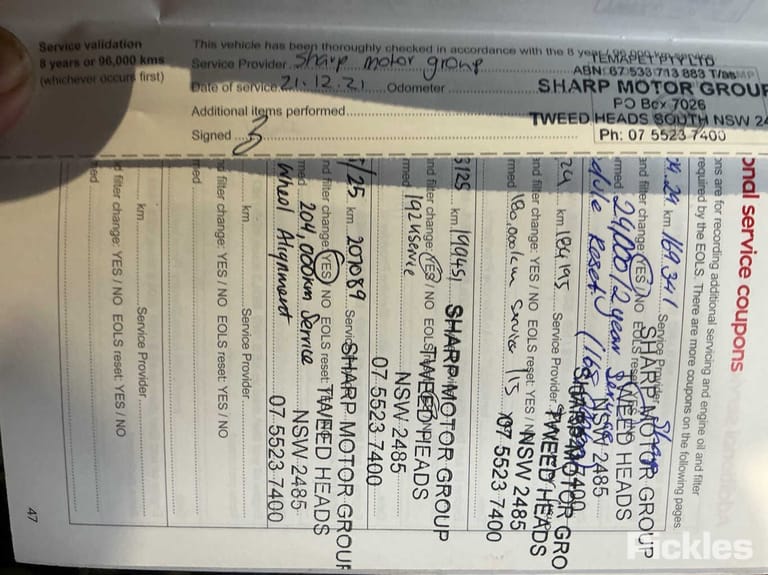 Service validation
8 years or 96,000 kms
(whichever occurs first)
This vehicle has been thoroughly checked in accordance with the 8 year / 96,000 km service
Service Provider Sharp motor group
Date of service 21.12.21 Odometer
Additional items performed
Signed
TEMAPET PTY LTD
ABN: 67 533 713 883 T/as
SHARP MOTOR GROUP
PO Box 7026
TWEED HEADS SOUTH NSW 24
Ph: 07 5523 7400
onal service coupons
ons are for recording additional servicing and engine oil and filter
required by the EOLS. There are more coupons on the following pages
.24 km 169,341 Service Provider Sharp
nd filter change: YES / NO EOLS reset
rmed 24,000/2 year Service
Reset
SHARP MOTOR GROUP
TWEED HEADS
NSW 2485
7400
24 km 184195 Service Provider
nd filter change: YES / NO EOLS reset: YES / NO
rmed 180,000km service
SHARP MOTOR GRO
TWEED HEADS
NSW 2485
07 5523 7400
/25 km 199451
nd filter change: YES / NO EOLS
rmed 192k service
SHARP MOTOR GROUP
TWEED HEADS
NSW 2485
07 5523 7400
/25 km 207089 Service
nd filter change: YES / NO EOLS reset:
med 204,000km Service
Wheel Alignment
SHARP MOTOR GROUP
TWEED HEADS
NSW 2485
07 5523 7400
km Service Provider
d filter change: YES / NO EOLS reset: YES / NO
med
km Service Provider
d filter change: YES / NO EOLS reset: YES / NO
ed
47
Pickles